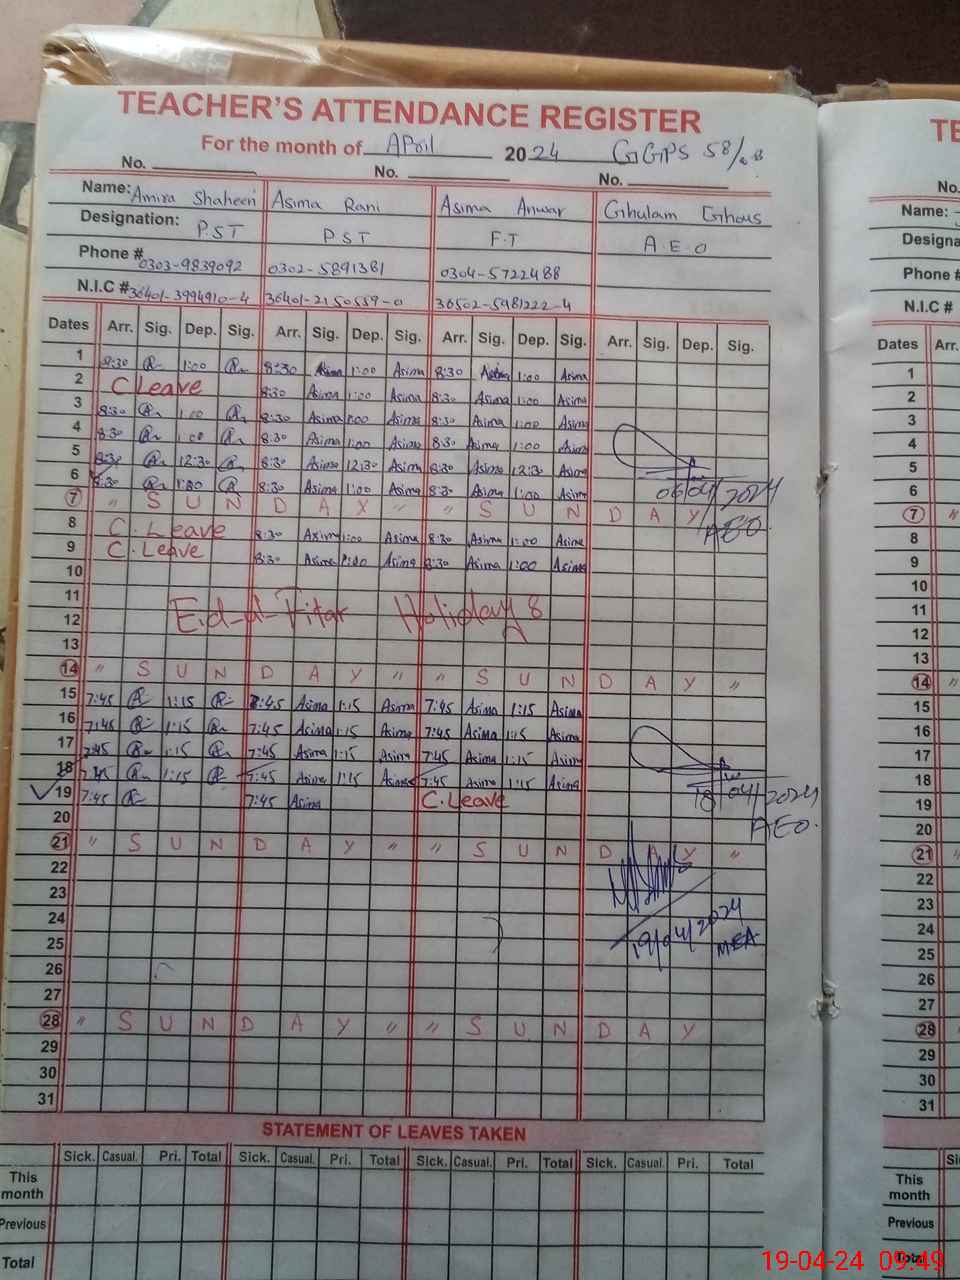 TEACHER'S ATTENDANCE REGISTER
For the month of April 2024 GGPS 58/
No. No. No.
Name: Amira Shaheen Asima Rani Asima Anwar Ghulam Ghous
Designation: P.S.T P.S.T F.T A.E.O
Phone # 0303-9839092 0302-5891381 0304-5722488
N.I.C # 36401-3994910-4 36401-2150559-0 36502-5981222-4
Dates Arr. Sig. Dep. Sig. Arr. Sig. Dep. Sig. Arr. Sig. Dep. Sig. Arr. Sig. Dep. Sig.
1 8:30 1:00 8:30 Asima 1:00 Asima 8:30 Asima 1:00 Asima
2 C.Leave 8:30 Asima 1:00 Asima 8:30 Asima 1:00 Asima
3 8:30 1:00 8:30 Asima 1:00 Asima 8:30 Asima 1:00 Asima
4 8:30 1:00 8:30 Asima 1:00 Asima 8:30 Asima 1:00 Asima
5 8:30 12:30 8:30 Asima 12:30 Asima 8:30 Asima 12:30 Asima
6 8:30 1:00 8:30 Asima 1:00 Asima 8:30 Asima 1:00 Asima 06/04/2024
7 " S U N D A Y " " S U N D A Y AEO
8 C. Leave 8:30 Asima 1:00 Asima 8:30 Asima 1:00 Asima
9 C. Leave 8:30 Asima 1:00 Asima 8:30 Asima 1:00 Asima
10
11
12 Eid-ul-Fitar Holiday8
13
14 " S U N D A Y " " S U N D A Y "
15 7:45 1:15 7:45 Asima 1:15 Asima 7:45 Asima 1:15 Asima
16 7:45 1:15 7:45 Asima 1:15 Asima 7:45 Asima 1:15 Asima
17 7:45 1:15 7:45 Asima 1:15 Asima 7:45 Asima 1:15 Asima
18 7:45 1:15 7:45 Asima 1:15 Asima 7:45 Asima 1:15 Asima
19 7:45 7:45 Asima C.Leave 18/04/2024
20 AEO.
21 " S U N D A Y " " S U N D A Y "
22
23
24 19/04/2024
25 MEA
26
27
28 " S U N D A Y " " S U N D A Y
29
30
31
STATEMENT OF LEAVES TAKEN
Sick. Casual. Pri. Total Sick. Casual. Pri. Total Sick. Casual. Pri. Total Sick. Casual. Pri. Total
This month
Previous
Total
TE
No.
Name:
Designa
Phone #
N.I.C #
Dates Arr.
1
2
3
4
5
6
7 "
8
9
10
11
12
13
14 "
15
16
17
18
19
20
21 "
22
23
24
25
26
27
28 "
29
30
31
Si
This month
Previous
Total
19-04-24 09:49